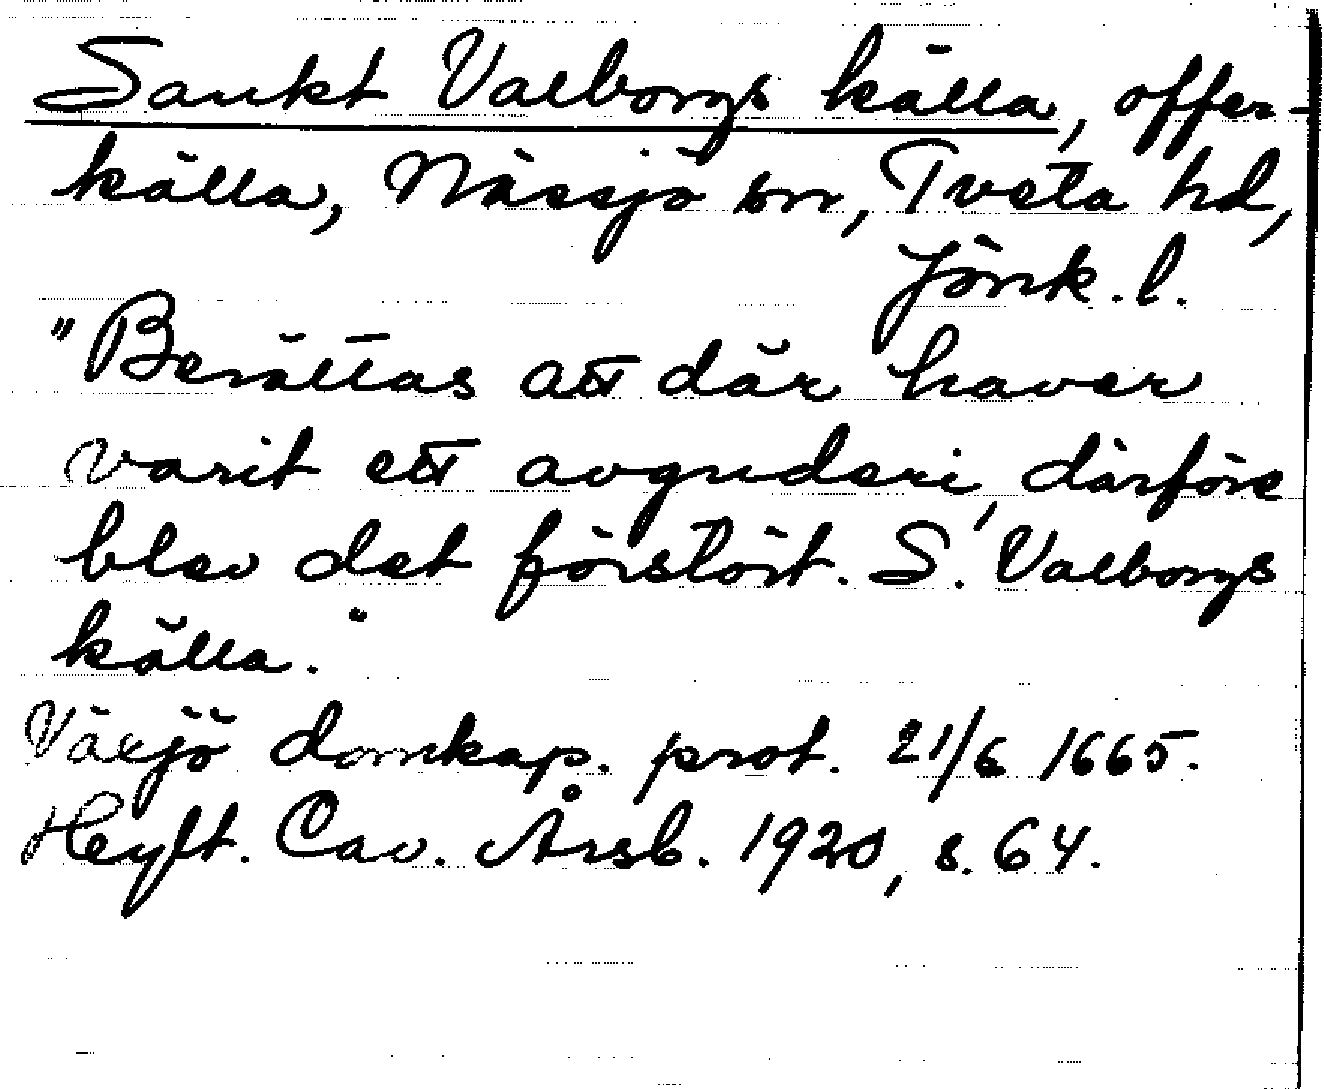 Sankt Valborgs källa, offer-
källa, Nässjö sn, Tveta hd,
Jönk. l.
"Berättas att där haver
varit ett avguderi, därföre
blev det förstört. S. Valborgs
källa."
Växjö domkap. prot. 21/6 1665.
Heyft. Cav. Årsb. 1920, s. 64.